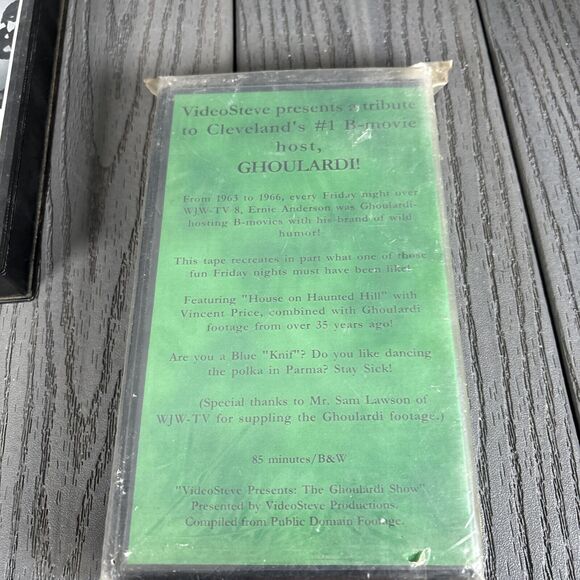 VideoSteve presents a tribute
to Cleveland's #1 B-movie
host,
GHOULARDI!
From 1963 to 1966, every Friday night over
WJW-TV 8, Ernie Anderson was Ghoulardi-
hosting B-movies with his brand of wild
humor!
This tape recreates in part what one of those
fun Friday nights must have been like!
Featuring "House on Haunted Hill" with
Vincent Price, combined with Ghoulardi
footage from over 35 years ago!
Are you a Blue "Knif"? Do you like dancing
the polka in Parma? Stay Sick!
(Special thanks to Mr. Sam Lawson of
WJW-TV for suppling the Ghoulardi footage.)
85 minutes/B&W
"VideoSteve Presents: The Ghoulardi Show"
Presented by VideoSteve Productions.
Compiled from Public Domain Footage.